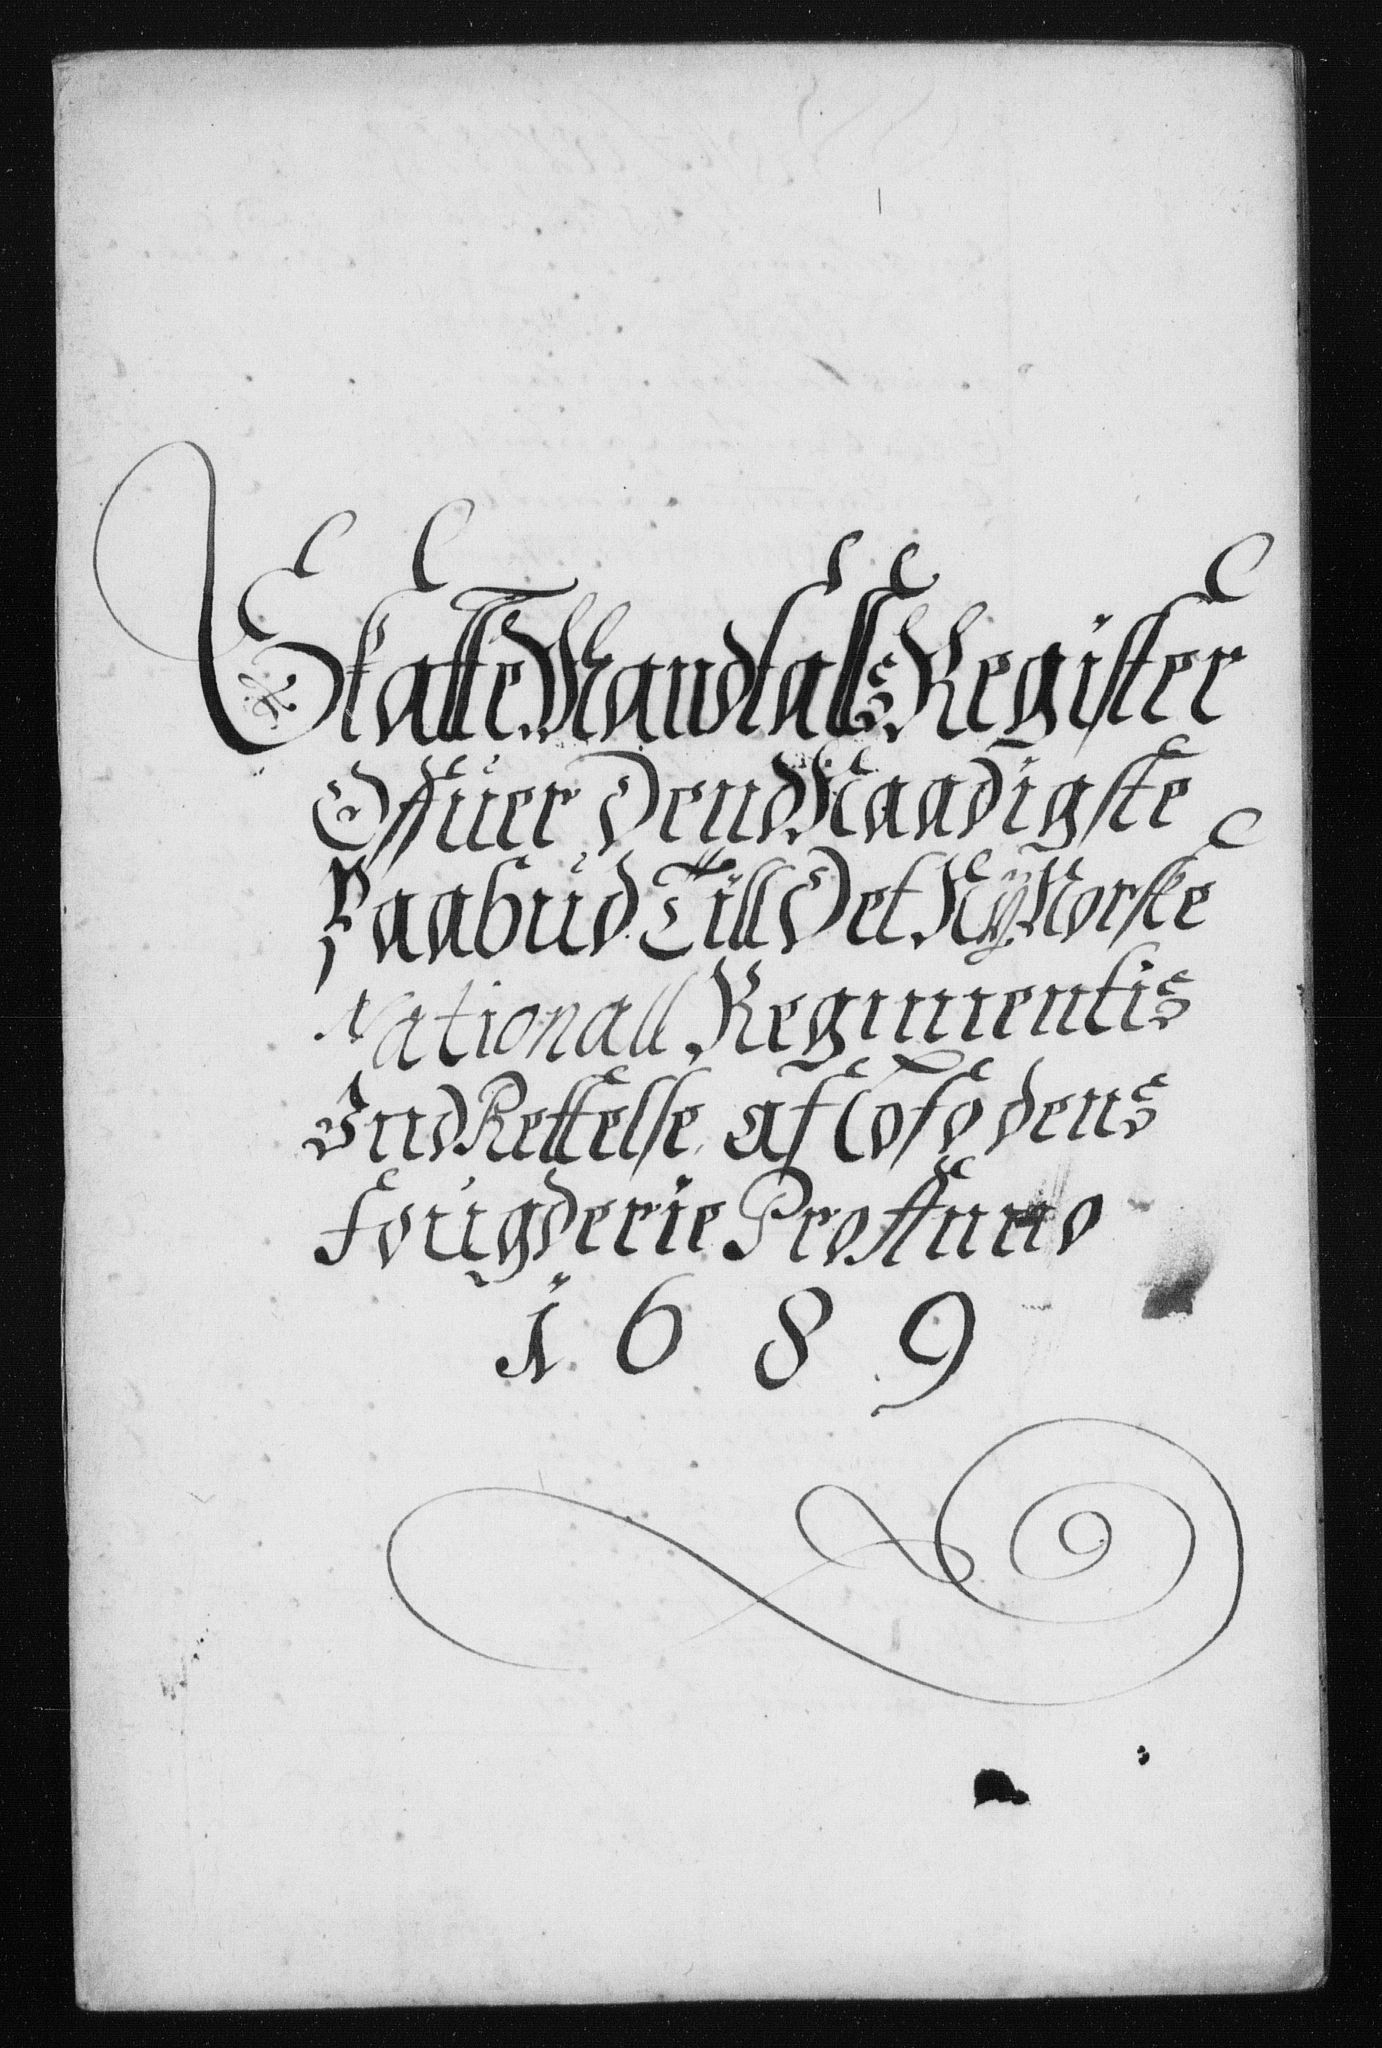 Skatte Mandtalls Register
Offuer Dend Naadigste
Paabud Till Det Ny Norske
Nationall Regimentis
IndRettelse af Lofodens
fougderie Pro Anno
1689